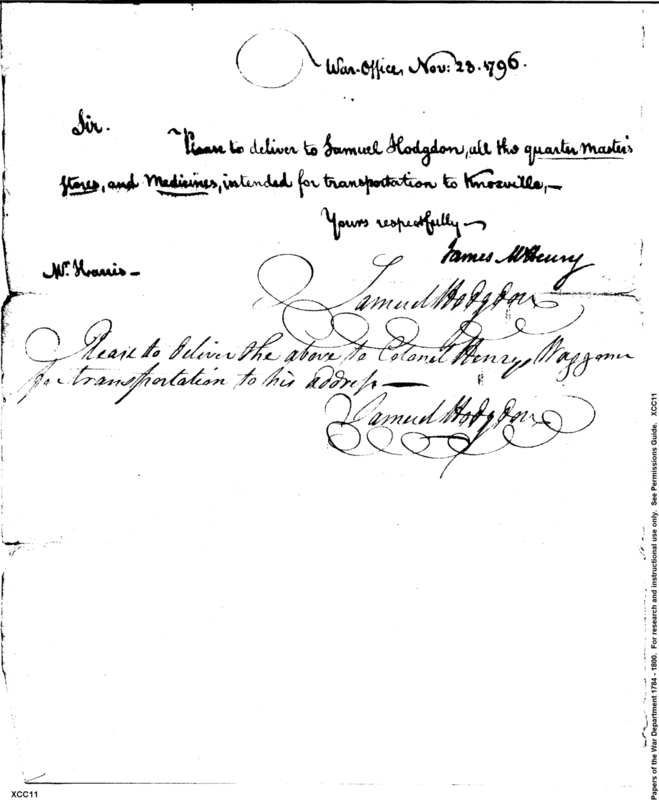 War-Office, Nov: 23. 1796.
Sir.
Please to deliver to Samuel Hodgdon, all the quarter Master's
stores, and Medicines, intended for transportation to Knoxville,—
Yours respectfully—
James McHenry
Mr. Harris—
Samuel Hodgdon
Please to deliver the above to Colonel Henry, Waggoner
for transportation to his address—
Samuel Hodgdon
XCC11
Papers of the War Department 1784 - 1800. For research and instructional use only. See Permissions Guide. XCC11